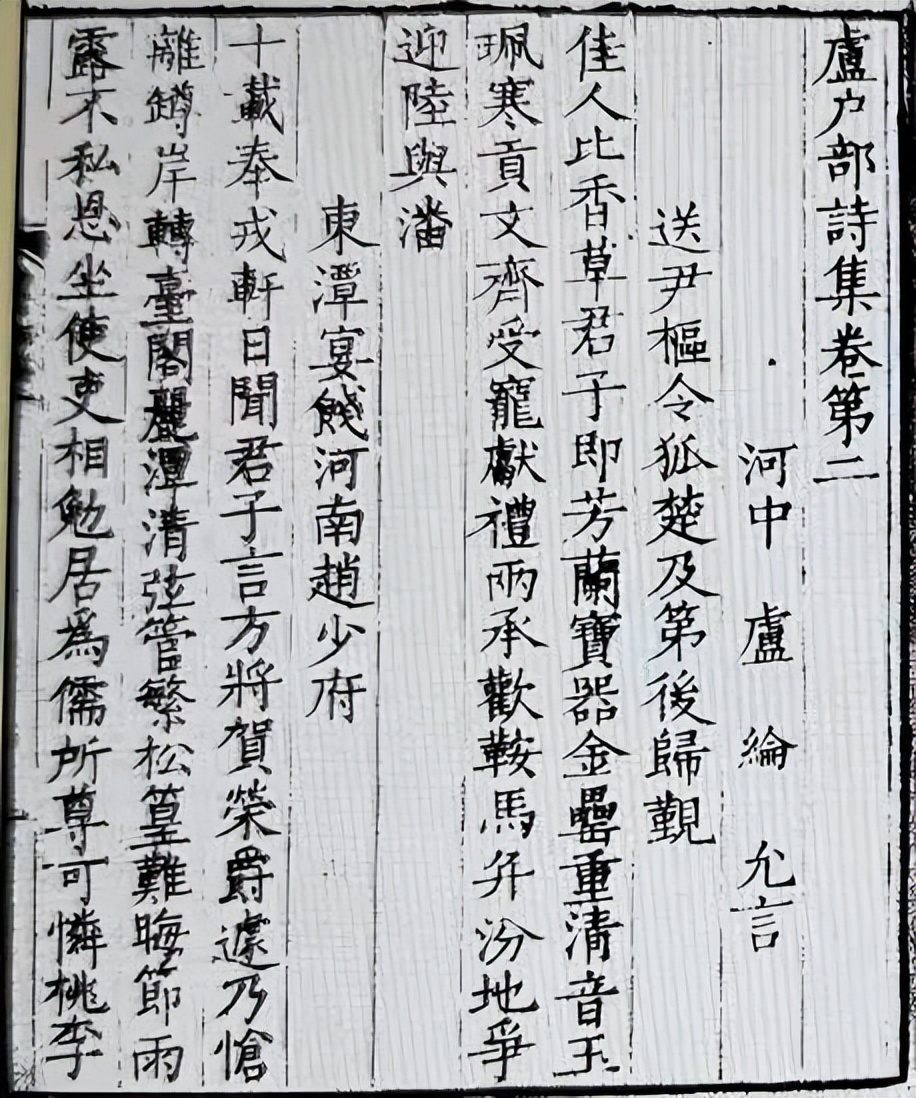 盧户部詩集卷第二
河中 盧 綸 允言
送尹樞令狐楚及第後歸覲
佳人比香草君子即芳蘭寶器金罍重清音玉
珮寒貢文齊受寵獻禮兩承歡鞍馬并汾地爭
迎陸與潘
東潭宴餞河南趙少府
十載奉戎軒日聞君子言方將賀榮爵遽乃愴
離鐏岸轉臺閣麗潭清弦管繁松篁難晦節雨
露不私恩坐使吏相勉居爲儒所尊可憐桃李